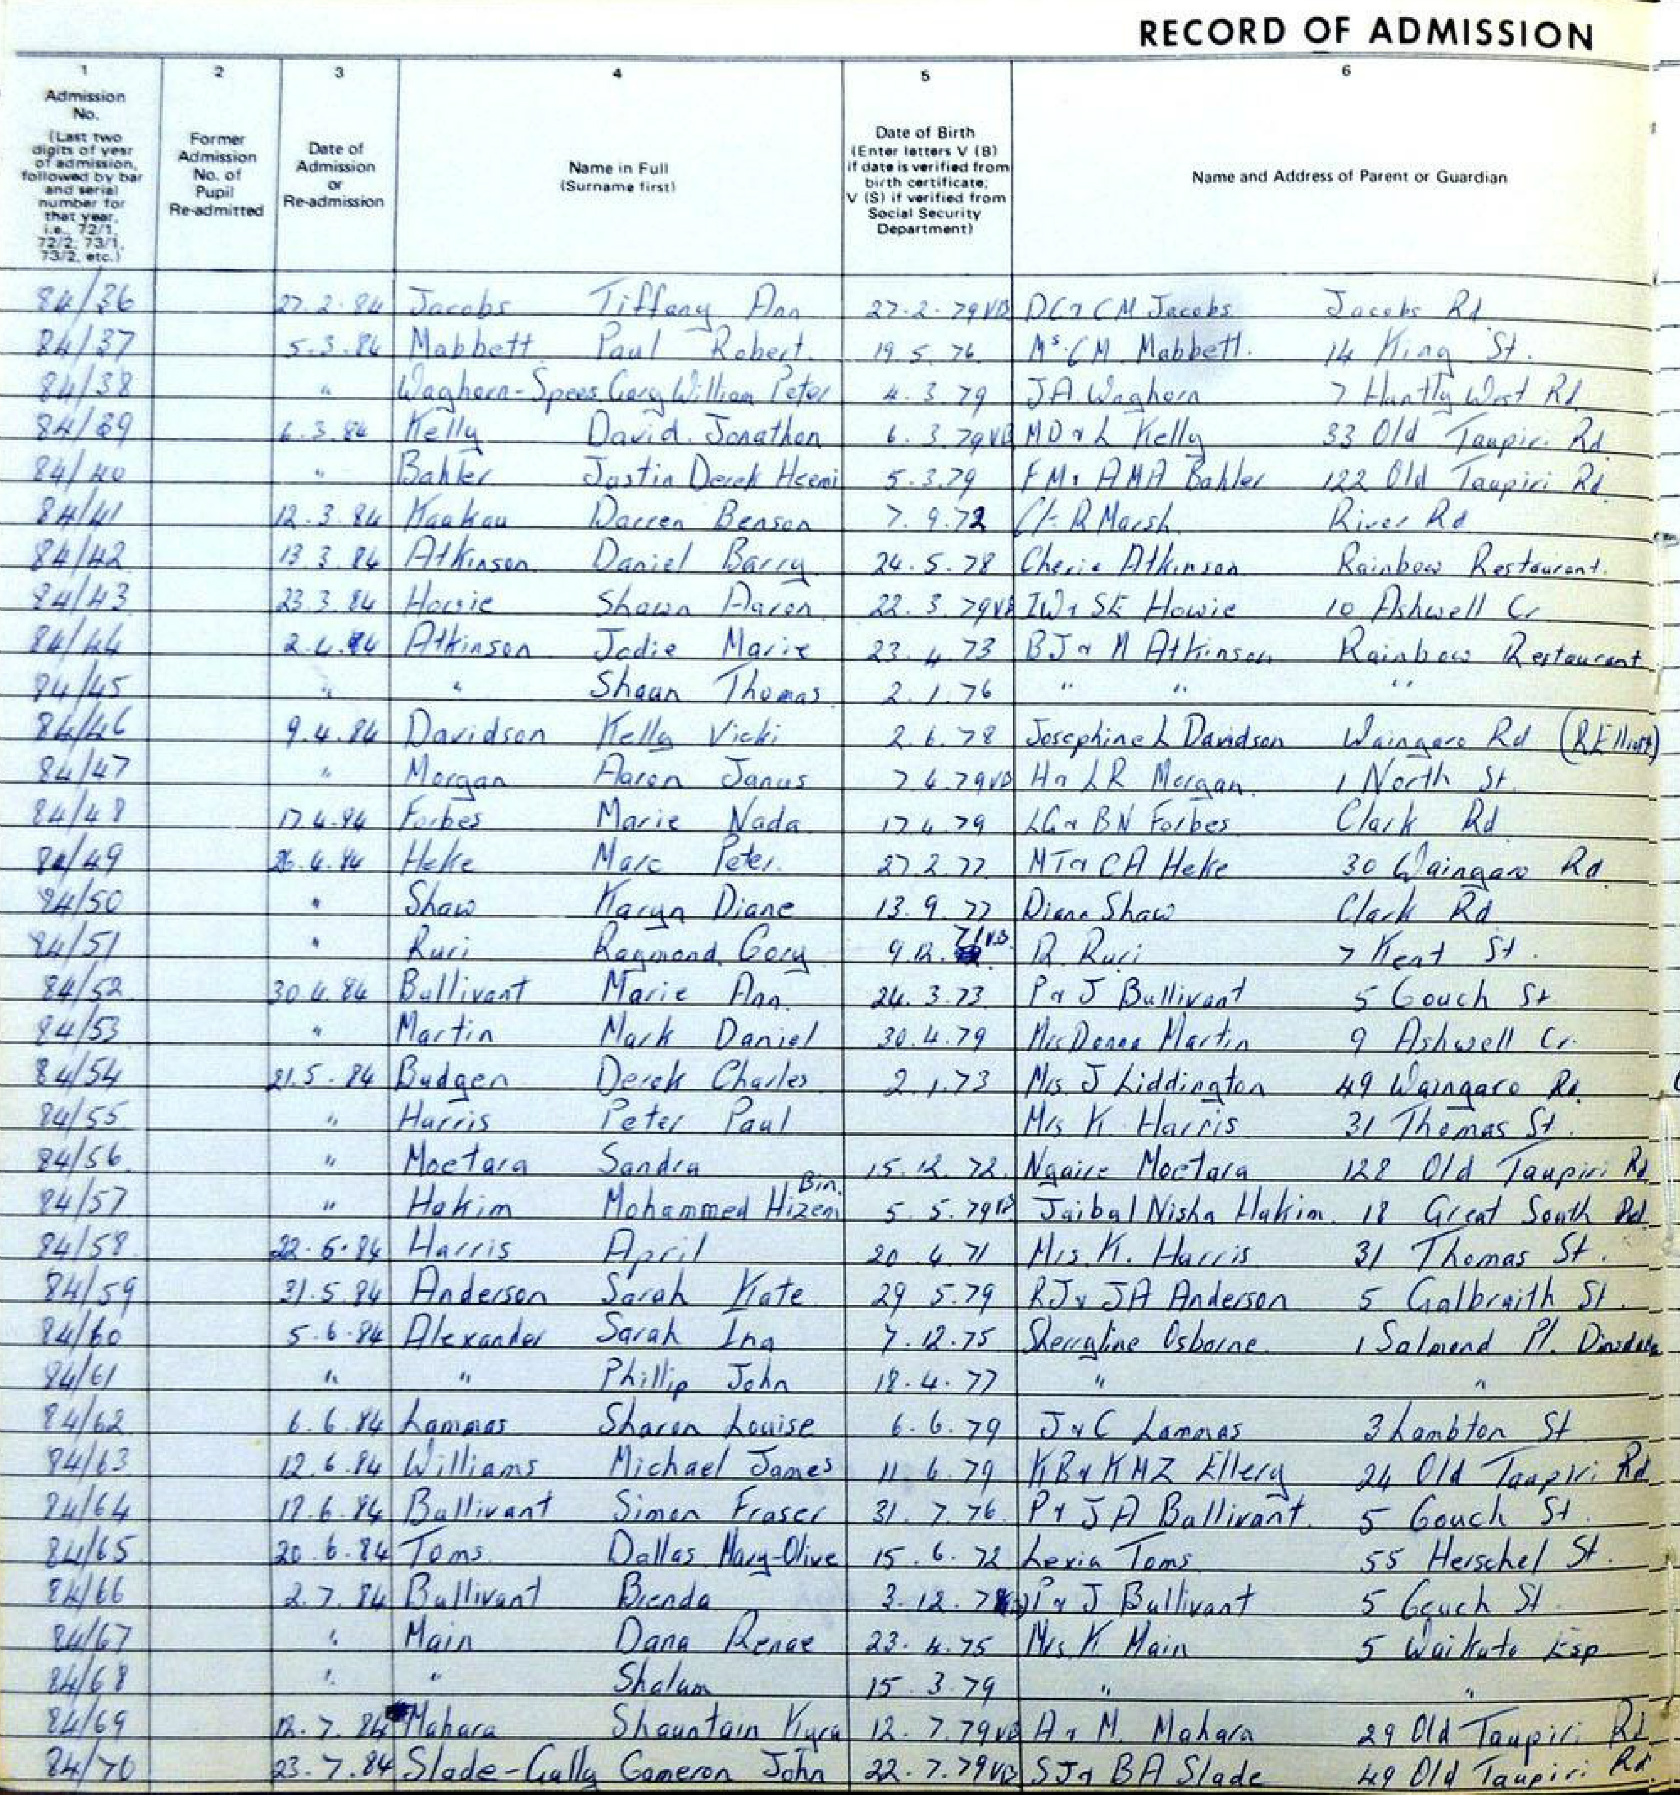 RECORD OF ADMISSION
1 2 3 4 5 6
Admission No. (Last two digits of year of admission, followed by bar and serial number for that year, i.e., 72/1, 72/2, 73/1, 73/2, etc.) Former Admission No. of Pupil Re-admitted Date of Admission or Re-admission Name in Full (Surname first) Date of Birth (Enter letters V (B) if date is verified from birth certificate; V (S) if verified from Social Security Department) Name and Address of Parent or Guardian
84/36 27.2.84 Jacobs Tiffany Ann 27.2.79 VB DC & CM Jacobs Jacobs Rd
84/37 5.3.84 Mabbett Paul Robert 19.5.76 Ms CM Mabbett 14 King St.
84/38 " Waghorn-Spees Gary William Peter 4.3.79 JA Waghorn 7 Huntly West Rd
84/39 6.3.84 Kelly David Jonathon 6.3.79 VB MD & L Kelly 33 Old Taupiri Rd
84/40 " Bahler Justin Derek Heemi 5.3.79 FM & AMA Bahler 122 Old Taupiri Rd
84/41 12.3.84 Kaakau Darren Benson 7.9.72 R Marsh River Rd
84/42 13.3.84 Atkinson Daniel Barry 24.5.78 Cherie Atkinson Rainbow Restaurant
84/43 23.3.84 Howie Shawn Aaron 22.3.79 VB IW & SE Howie 10 Ashwell Cr
84/44 2.4.84 Atkinson Jodie Marie 23.4.73 BJ & M Atkinson Rainbow Restaurant
84/45 " " Shaun Thomas 2.1.76 " " "
84/46 9.4.84 Davidson Kelly Vicki 2.6.78 Josephine L Davidson Waingaro Rd (R Elliott)
84/47 " Morgan Aaron Janus 7.4.79 VB H & LR Morgan 1 North St
84/48 17.4.84 Forbes Marie Nada 17.4.79 LG & BN Forbes Clark Rd
84/49 26.4.84 Heke Marc Peter 27.2.77 MT & CA Heke 30 Waingaro Rd
84/50 " Shaw Karyn Diane 13.9.77 Diane Shaw Clark Rd
84/51 " Ruri Raymond Gory 9.12.71 VB R. Ruri 7 Kent St.
84/52 30.4.84 Bullivant Marie Ann 24.3.73 P & J Bullivant 5 Gouch St
84/53 " Martin Mark Daniel 30.4.79 Mrs Donna Martin 9 Ashwell Cr.
84/54 21.5.84 Budgen Derek Charles 2.1.73 Mrs J Liddington 49 Waingaro Rd.
84/55 " Harris Peter Paul Mrs K Harris 31 Thomas St.
84/56 " Moetara Sandra 15.12.72 Ngaire Moetara 128 Old Taupiri Rd
84/57 " Hakim Mohammed Hizem Bin 5.5.79 VB Jaibal Nisha Hakim 18 Great South Rd
84/58 22.5.84 Harris April 20.4.71 Mrs. K. Harris 31 Thomas St.
84/59 31.5.84 Anderson Sarah Kate 29.5.79 RJ & JA Anderson 5 Galbraith St.
84/60 5.6.84 Alexander Sarah Ina 7.12.75 Sherryline Osborne 1 Salmond Pl. Dinsdale
84/61 " " Phillip John 18.4.77 " "
84/62 6.6.84 Lammas Sharon Louise 6.6.79 J & C Lammas 3 Lambton St
84/63 12.6.84 Williams Michael James 11.6.79 KB & KMZ Ellery 24 Old Taupiri Rd
84/64 18.6.84 Bullivant Simon Fraser 31.7.76 P & JA Bullivant 5 Gouch St.
84/65 20.6.84 Toms Dallas Mary-Olive 15.6.72 Lexia Toms 55 Herschel St.
84/66 2.7.84 Bullivant Brenda 3.12.7 P & J Bullivant 5 Gouch St.
84/67 " Main Dana Renae 23.4.75 Mrs K Main 5 Waikato Esp
84/68 " " Shalum 15.3.79 " "
84/69 12.7.84 Mahara Shauntain Kyra 12.7.79 VB A & M. Mahara 29 Old Taupiri Rd
84/70 23.7.84 Slade-Gully Cameron John 22.7.79 VB SJ & BA Slade 49 Old Taupiri Rd